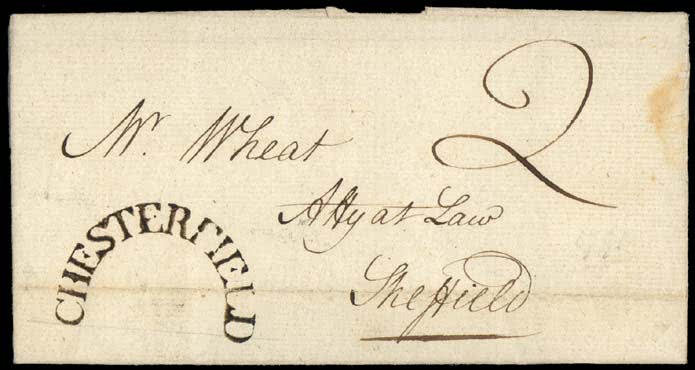 2
Mr. Wheat
Atty at Law
Sheffield
CHESTERFIELD